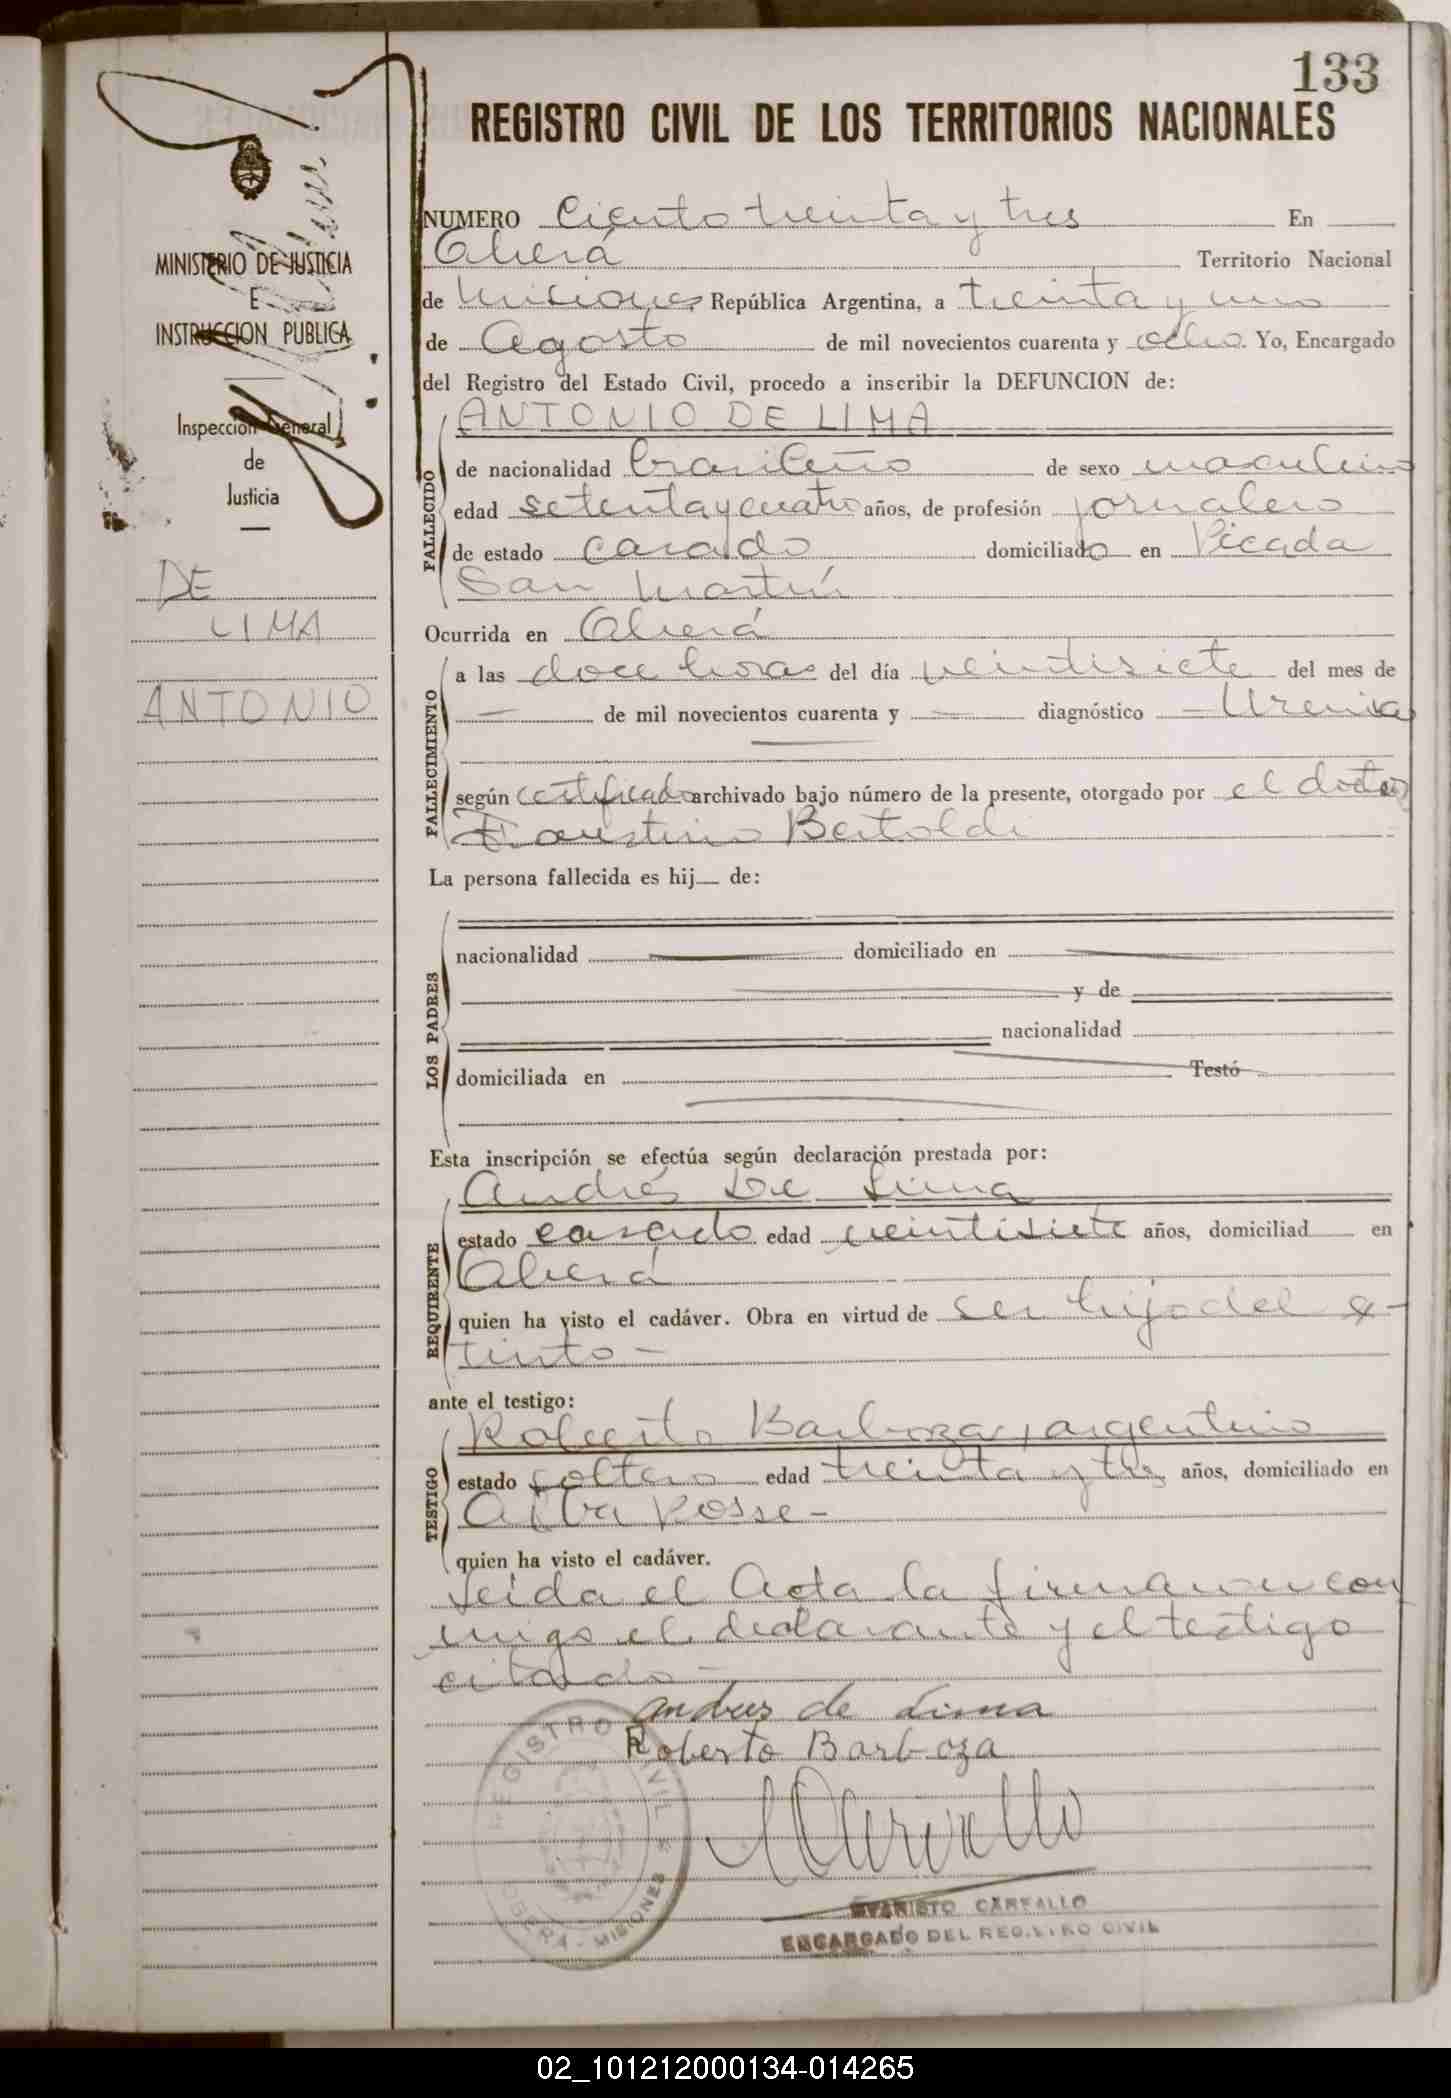 133
REGISTRO CIVIL DE LOS TERRITORIOS NACIONALES
MINISTERIO DE JUSTICIA
E
INSTRUCCION PUBLICA
Inspección General
de
Justicia
DE
LIMA
ANTONIO
NUMERO Ciento treinta y tres En
Oberá Territorio Nacional
de Misiones República Argentina, a treinta y uno
de Agosto de mil novecientos cuarenta y ocho. Yo, Encargado
del Registro del Estado Civil, procedo a inscribir la DEFUNCION de:
ANTONIO DE LIMA
FALLECIDO
de nacionalidad brasileño de sexo masculino
edad setenta y cuatro años, de profesión jornalero
de estado casado domiciliado en Picada
San Martín
Ocurrida en Oberá
FALLECIMIENTO
a las doce horas del día veintisiete del mes de
— de mil novecientos cuarenta y — diagnóstico — Uremia
según certificado archivado bajo número de la presente, otorgado por el doctor
Faustino Bertoldi
La persona fallecida es hij de:
LOS PADRES
nacionalidad domiciliado en
y de
nacionalidad
domiciliada en Testó
Esta inscripción se efectúa según declaración prestada por:
REQUIRENTE
Andrés De Lima
estado casado edad veintisiete años, domiciliad en
Oberá
quien ha visto el cadáver. Obra en virtud de ser hijo del ex-
tinto -
ante el testigo:
TESTIGO
Roberto Barboza, argentino
estado soltero edad treinta y tres años, domiciliado en
Alba Posse -
quien ha visto el cadáver.
Leida el Acta la firmaron con
migo el declarante y el testigo
citado -
andres de Lima
Roberto Barboza
REGISTRO CIVIL
OBERA - MISIONES
EVARISTO CARVALLO
ENCARGADO DEL REGISTRO CIVIL
02_101212000134-014265